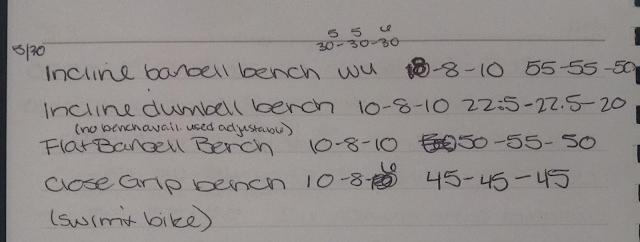 5 5 6
30-30-30
5/30
Incline barbell bench wu 10-8-10 55-55-50
Incline dumbell bench 10-8-10 22.5-22.5-20
(no bench avail. used adjustable)
Flat Barbell Bench 10-8-10 50-55-50
6
Close Grip bench 10-8- 45-45-45
(swim + bike)